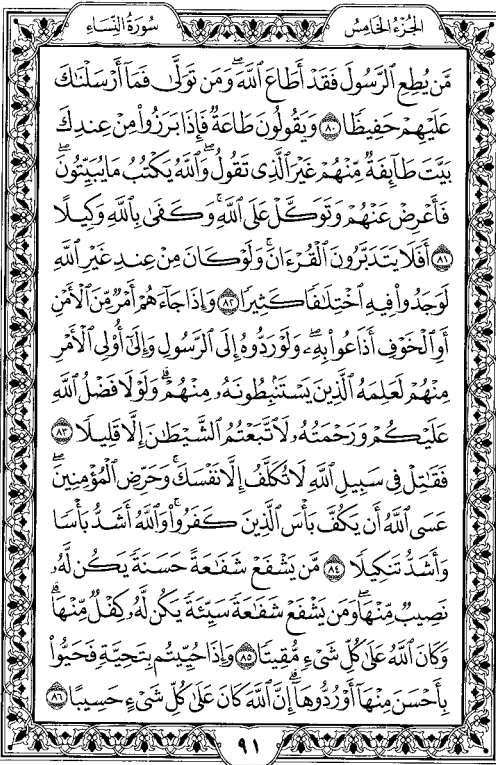 الجزء الخامس
سورة النساء
مَّن يُطِعِ ٱلرَّسُولَ فَقَدْ أَطَاعَ ٱللَّهَ ۖ وَمَن تَوَلَّىٰ فَمَآ أَرْسَلْنَٰكَ
عَلَيْهِمْ حَفِيظًا ﴿٨٠﴾ وَيَقُولُونَ طَاعَةٌ فَإِذَا بَرَزُوا۟ مِنْ عِندِكَ
بَيَّتَ طَآئِفَةٌ مِّنْهُمْ غَيْرَ ٱلَّذِى تَقُولُ ۖ وَٱللَّهُ يَكْتُبُ مَا يُبَيِّتُونَ ۖ
فَأَعْرِضْ عَنْهُمْ وَتَوَكَّلْ عَلَى ٱللَّهِ ۚ وَكَفَىٰ بِٱللَّهِ وَكِيلًا
﴿٨١﴾ أَفَلَا يَتَدَبَّرُونَ ٱلْقُرْءَانَ ۚ وَلَوْ كَانَ مِنْ عِندِ غَيْرِ ٱللَّهِ
لَوَجَدُوا۟ فِيهِ ٱخْتِلَٰفًا كَثِيرًا ﴿٨٢﴾ وَإِذَا جَآءَهُمْ أَمْرٌ مِّنَ ٱلْأَمْنِ
أَوِ ٱلْخَوْفِ أَذَاعُوا۟ بِهِۦ ۖ وَلَوْ رَدُّوهُ إِلَى ٱلرَّسُولِ وَإِلَىٰٓ أُو۟لِى ٱلْأَمْرِ
مِنْهُمْ لَعَلِمَهُ ٱلَّذِينَ يَسْتَنۢبِطُونَهُۥ مِنْهُمْ ۗ وَلَوْلَا فَضْلُ ٱللَّهِ
عَلَيْكُمْ وَرَحْمَتُهُۥ لَٱتَّبَعْتُمُ ٱلشَّيْطَٰنَ إِلَّا قَلِيلًا ﴿٨٣﴾
فَقَٰتِلْ فِى سَبِيلِ ٱللَّهِ لَا تُكَلَّفُ إِلَّا نَفْسَكَ ۚ وَحَرِّضِ ٱلْمُؤْمِنِينَ ۖ
عَسَى ٱللَّهُ أَن يَكُفَّ بَأْسَ ٱلَّذِينَ كَفَرُوا۟ ۚ وَٱللَّهُ أَشَدُّ بَأْسًا
وَأَشَدُّ تَنكِيلًا ﴿٨٤﴾ مَّن يَشْفَعْ شَفَٰعَةً حَسَنَةً يَكُن لَّهُۥ
نَصِيبٌ مِّنْهَا ۖ وَمَن يَشْفَعْ شَفَٰعَةً سَيِّئَةً يَكُن لَّهُۥ كِفْلٌ مِّنْهَا ۗ
وَكَانَ ٱللَّهُ عَلَىٰ كُلِّ شَىْءٍ مُّقِيتًا ﴿٨٥﴾ وَإِذَا حُيِّيتُم بِتَحِيَّةٍ فَحَيُّوا۟
بِأَحْسَنَ مِنْهَآ أَوْ رُدُّوهَآ ۗ إِنَّ ٱللَّهَ كَانَ عَلَىٰ كُلِّ شَىْءٍ حَسِيبًا ﴿٨٦﴾
٩١